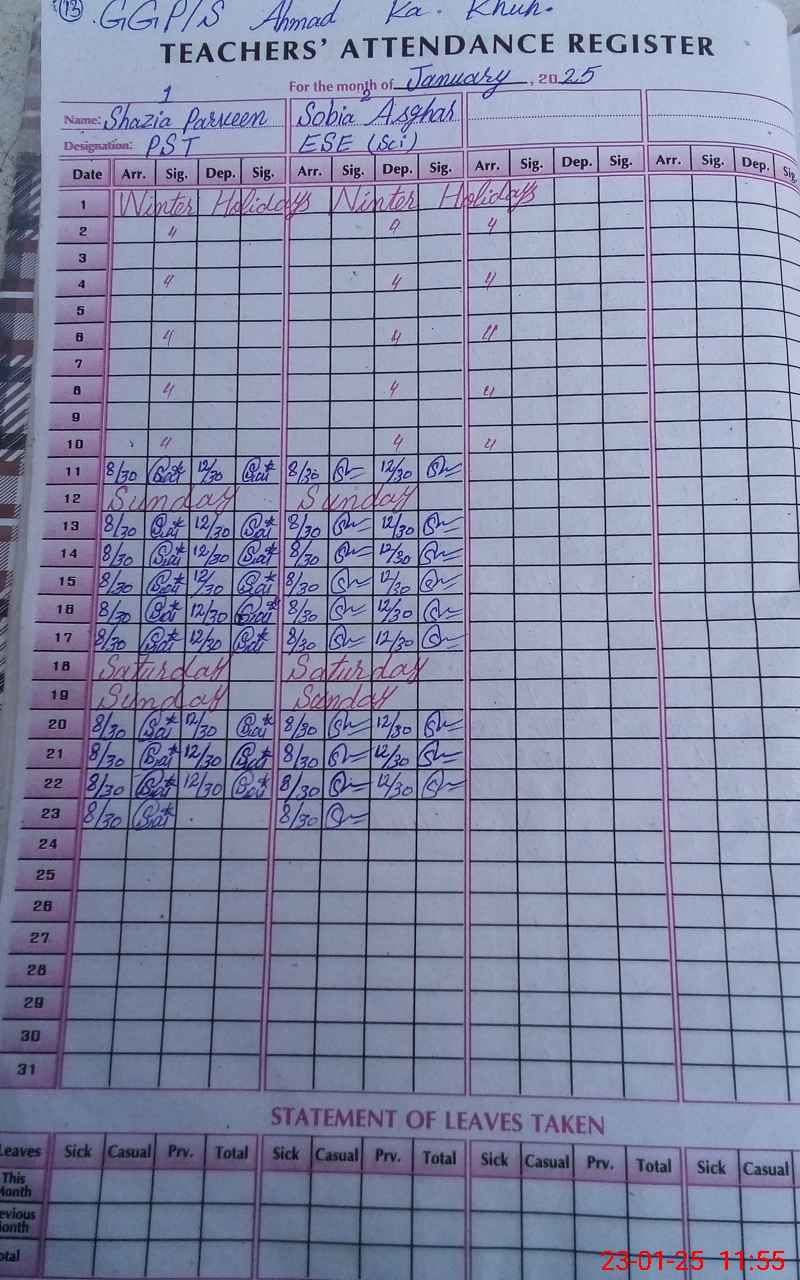 (13) GGP/S Ahmad Ka. Khuh.
TEACHERS' ATTENDANCE REGISTER
For the month of January, 2025
1 2
Name: Shazia Parveen Sobia Asghar
Designation: PST ESE (Sci)
Date Arr. Sig. Dep. Sig. Arr. Sig. Dep. Sig. Arr. Sig. Dep. Sig. Arr. Sig. Dep. Sig.
1 Winter Holidays Winter Holidays
2 " " "
3
4 " " "
5
6 " " "
7
8 " " "
9
10 " " "
11 8/30 12/30 8/30 12/30
12 Sunday Sunday
13 8/30 12/30 8/30 12/30
14 8/30 12/30 8/30 12/30
15 8/30 12/30 8/30 12/30
16 8/30 12/30 8/30 12/30
17 8/30 12/30 8/30 12/30
18 Saturday Saturday
19 Sunday Sunday
20 8/30 12/30 8/30 12/30
21 8/30 12/30 8/30 12/30
22 8/30 12/30 8/30 12/30
23 8/30 8/30
24
25
26
27
28
29
30
31
STATEMENT OF LEAVES TAKEN
Leaves Sick Casual Prv. Total Sick Casual Prv. Total Sick Casual Prv. Total Sick Casual
This
Month
evious
onth
otal
23-01-25 11:55